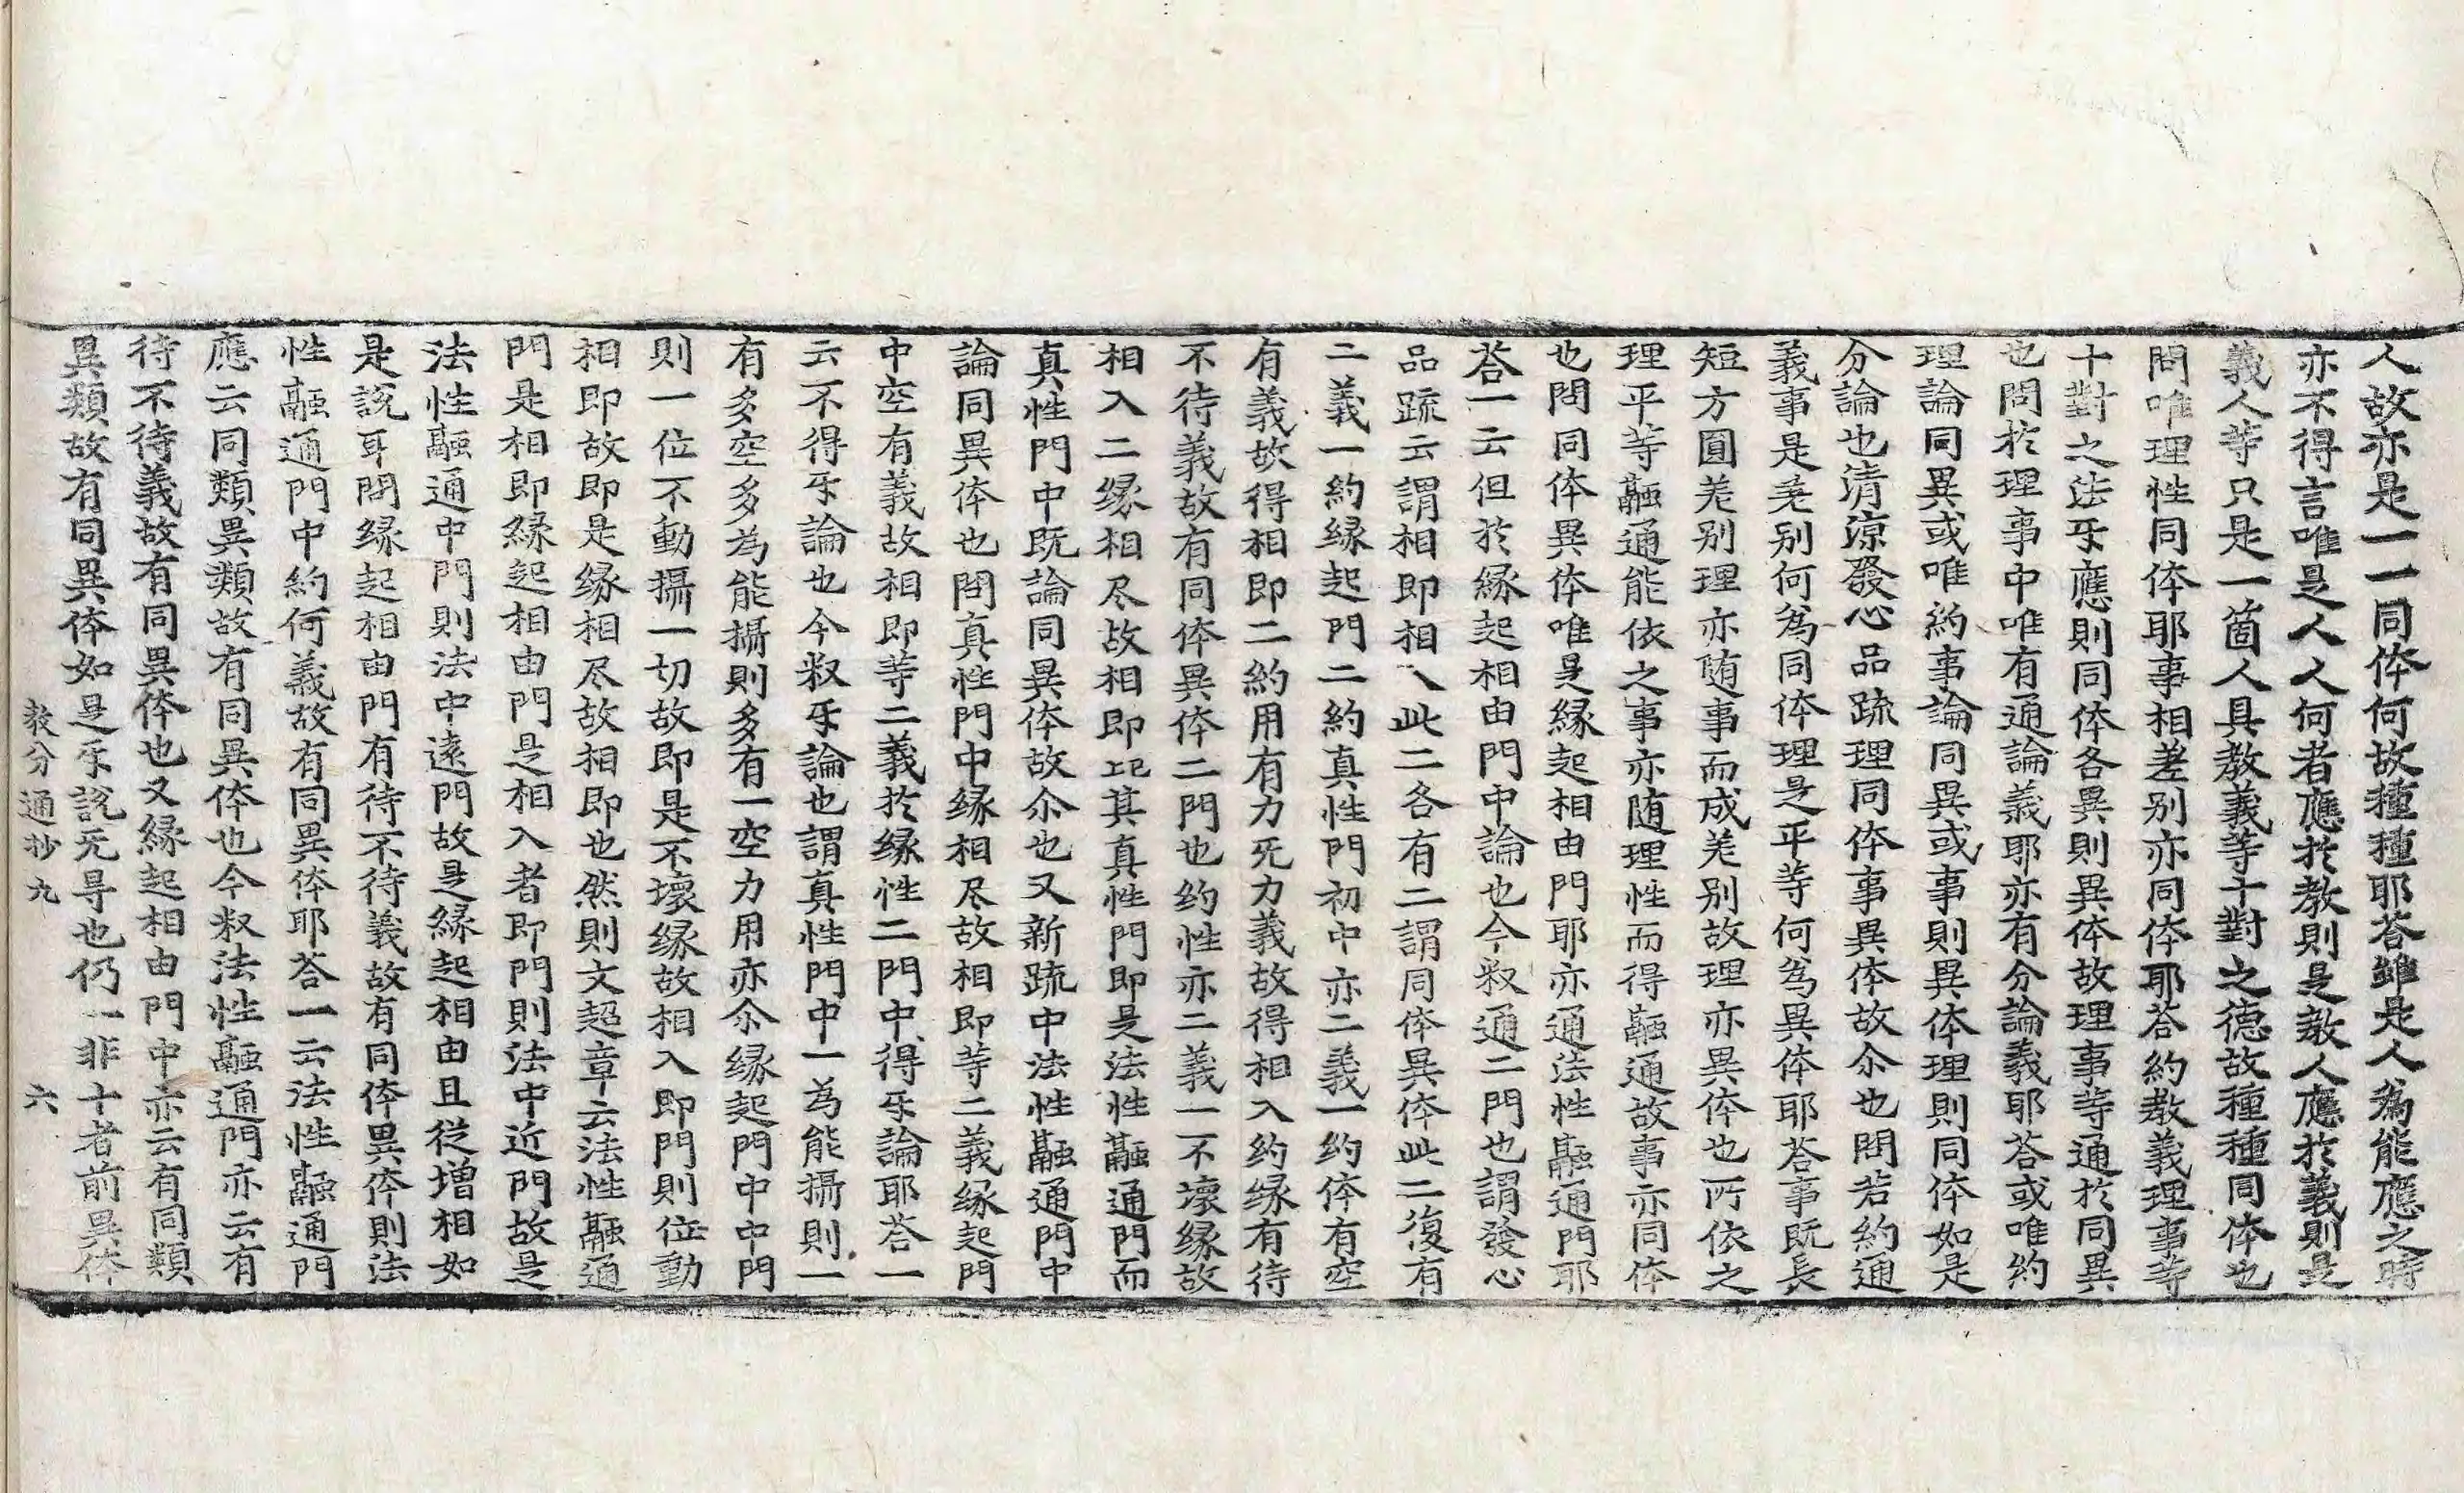 人故亦是一一同体何故種種耶荅雖是人爲能應之時
亦不得言唯是人人何者應於教則是教人應於義則是
義人等只是一箇人具教義等十對之德故種種同体也
問唯理性同体耶事相差别亦同体耶荅約教義理事等
十對之法㸦應則同体各異則異体故理事等通於同異
也問於理事中唯有通論義耶亦有分論義耶荅或唯約
理論同異或唯約事論同異或事則異体理則同体如是
分論也清涼發心品䟽理同体事異体故尒也問若約通
義事是差别何爲同体理是平等何爲異体耶荅事既長
短方圓差别理亦随事而成差别故理亦異体也所依之
理平等融通能依之事亦随理性而得融通故事亦同体
也問同体異体唯是縁起相由門耶亦通法性融通門耶
荅一云但於縁起相由門中論也今釈通二門也謂發心
品䟽云謂相即相入此二各有二謂同体異体此二復有
二義一約縁起門二約真性門初中亦二義一約体有空
有義故得相即二約用有力旡力義故得相入約縁有待
不待義故有同体異体二門也約性亦二義一不壞縁故
相入二縁相尽故相即㠯其真性門即是法性融通門而
真性門中既論同異体故尒也又新䟽中法性融通門中
論同異体也問真性門中縁相尽故相即等二義縁起門
中空有義故相即等二義於縁性二門中得㸦論耶荅一
云不得㸦論也今釈㸦論也謂真性門中一為能攝則一
有多空多為能攝則多有一空力用亦尒縁起門中中門
則一位不動攝一切故即是不壞縁故相入即門則位動
相即故即是縁相尽故相即也然則文超章云法性融通
門是相即縁起相由門是相入者即門則法中近門故是
法性融通中門則法中遠門故是縁起相由且從增相如
是說耳問縁起相由門有待不待義故有同体異体則法
性融通門中約何義故有同異体耶荅一云法性融通門
應云同類異類故有同異体也今釈法性融通門亦云有
待不待義故有同異体也又縁起相由門中亦云有同類
異類故有同異体如是㸦說旡㝵也仍一非十者前異体
教分通抄九　六